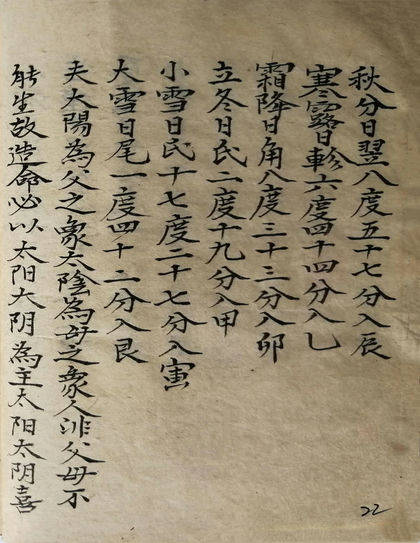 秋分日翌八度五十七分入辰
寒露日軫六度四十四分入乙
霜降日角八度三十三分入卯
立冬日氐二度十九分入甲
小雪日氐十七度二十七分入寅
大雪日尾一度四十二分入艮
夫太陽為父之象太陰為母之象人非父母不
能生故造命必以太阳太阴為主太阳太阴喜
22